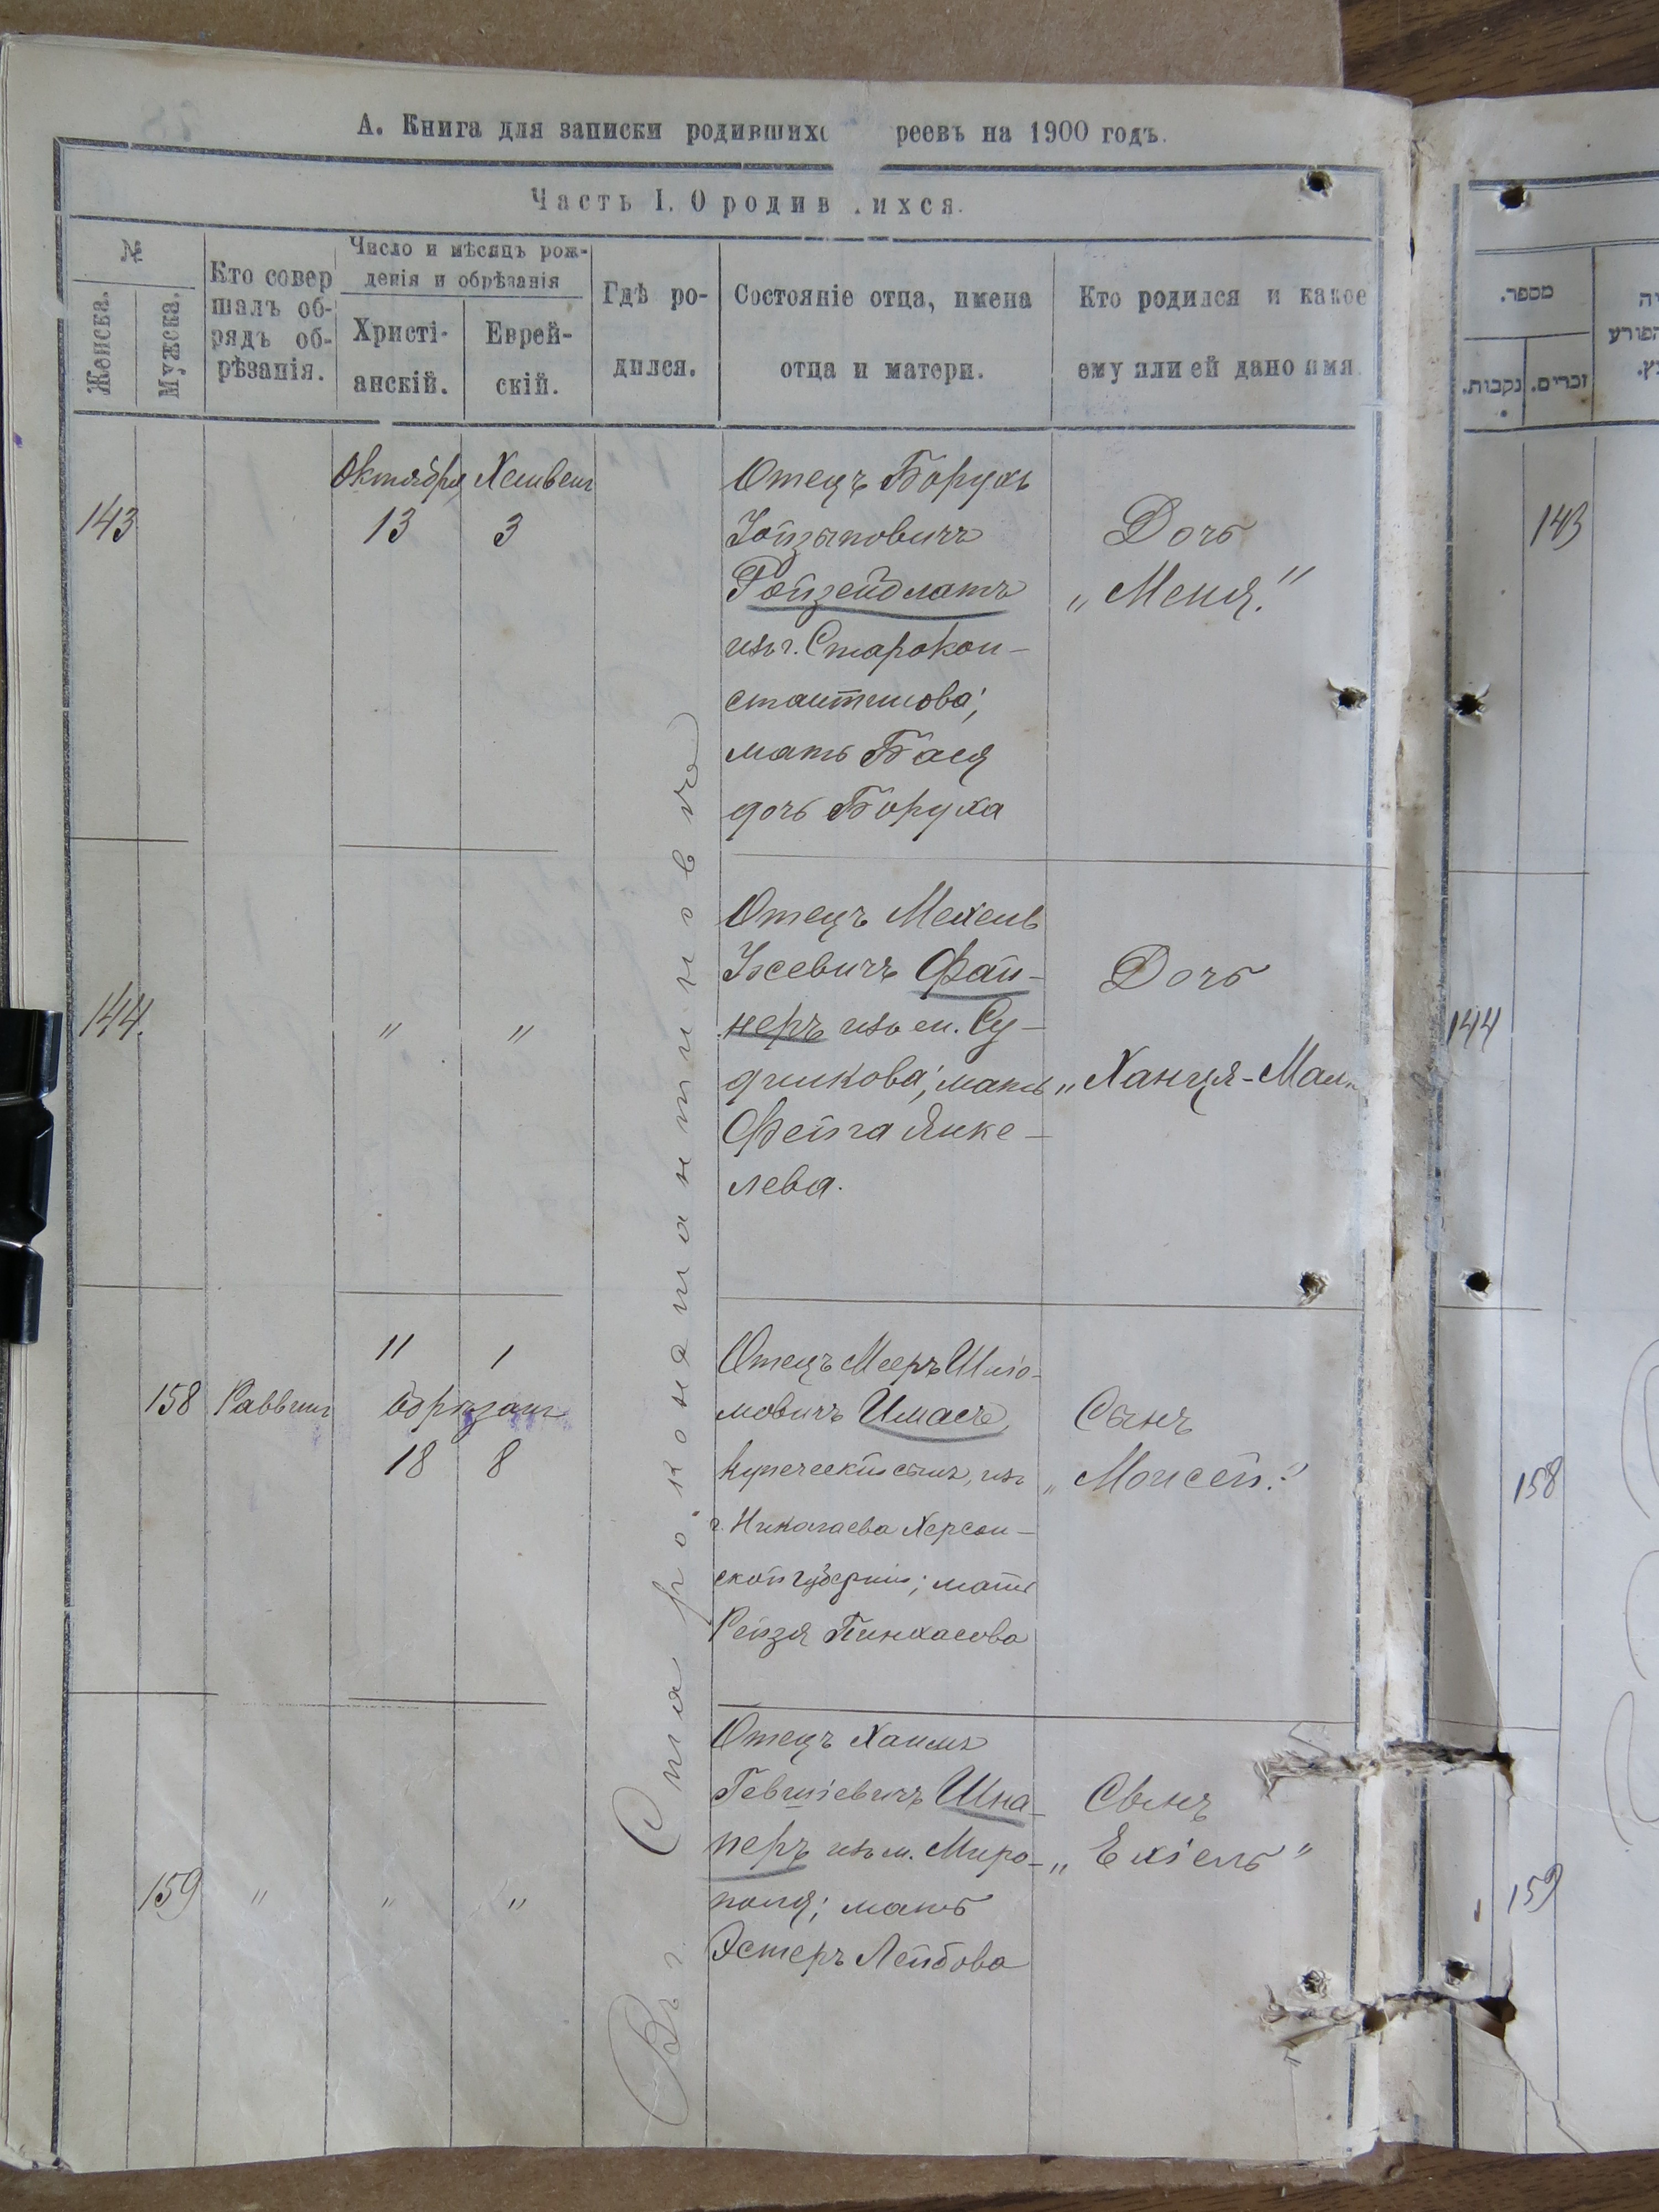 А. Книга для записки родившихс реевъ на 1900 годъ.
Часть I. О родив ихся.
№
Женска.
Мужска.
Кто совер
шалъ об-
рядъ об-
рѣзанія.
Число и мѣсяцъ рож-
денія и обрѣзанія
Христі-
анскій.
Еврей-
скій.
Гдѣ ро-
дился.
Состояніе отца, имена
отца и матери.
Кто родился и какое
ему или ей дано имя.
143
Октября
13
Хешвенъ
3
Отецъ Борухъ
Ройзенблатъ
изъ г. Старокон-
стантинова;
мать Бася
дочь Боруха
Дочь
„Меня."
144.
"
"
Отецъ Мехель
Фай-
неръ изъ м. Су-
дилкова; мать
Фейга Янке-
лева.
Дочь
„Ханця-Мал
158
Раввинъ
11
1
Обрѣзанъ
18
8
Отецъ Мееръ Шлё-
мовичъ Имасъ,
купеческій сынъ, изъ
г. Николаева Херсон-
ской губерніи; мать
Рейзя Пинхасова
Сынъ
„Моисей."
159
"
"
"
Отецъ Хаимъ
Шна-
перъ изъ м. Миро-
поля; мать
Эстеръ Лейбова
Сынъ
„Ехіель"
Въ г. Староконстантиновѣ
מספר.
נקבות.
זכרים.
הפורע
143
144
158
159